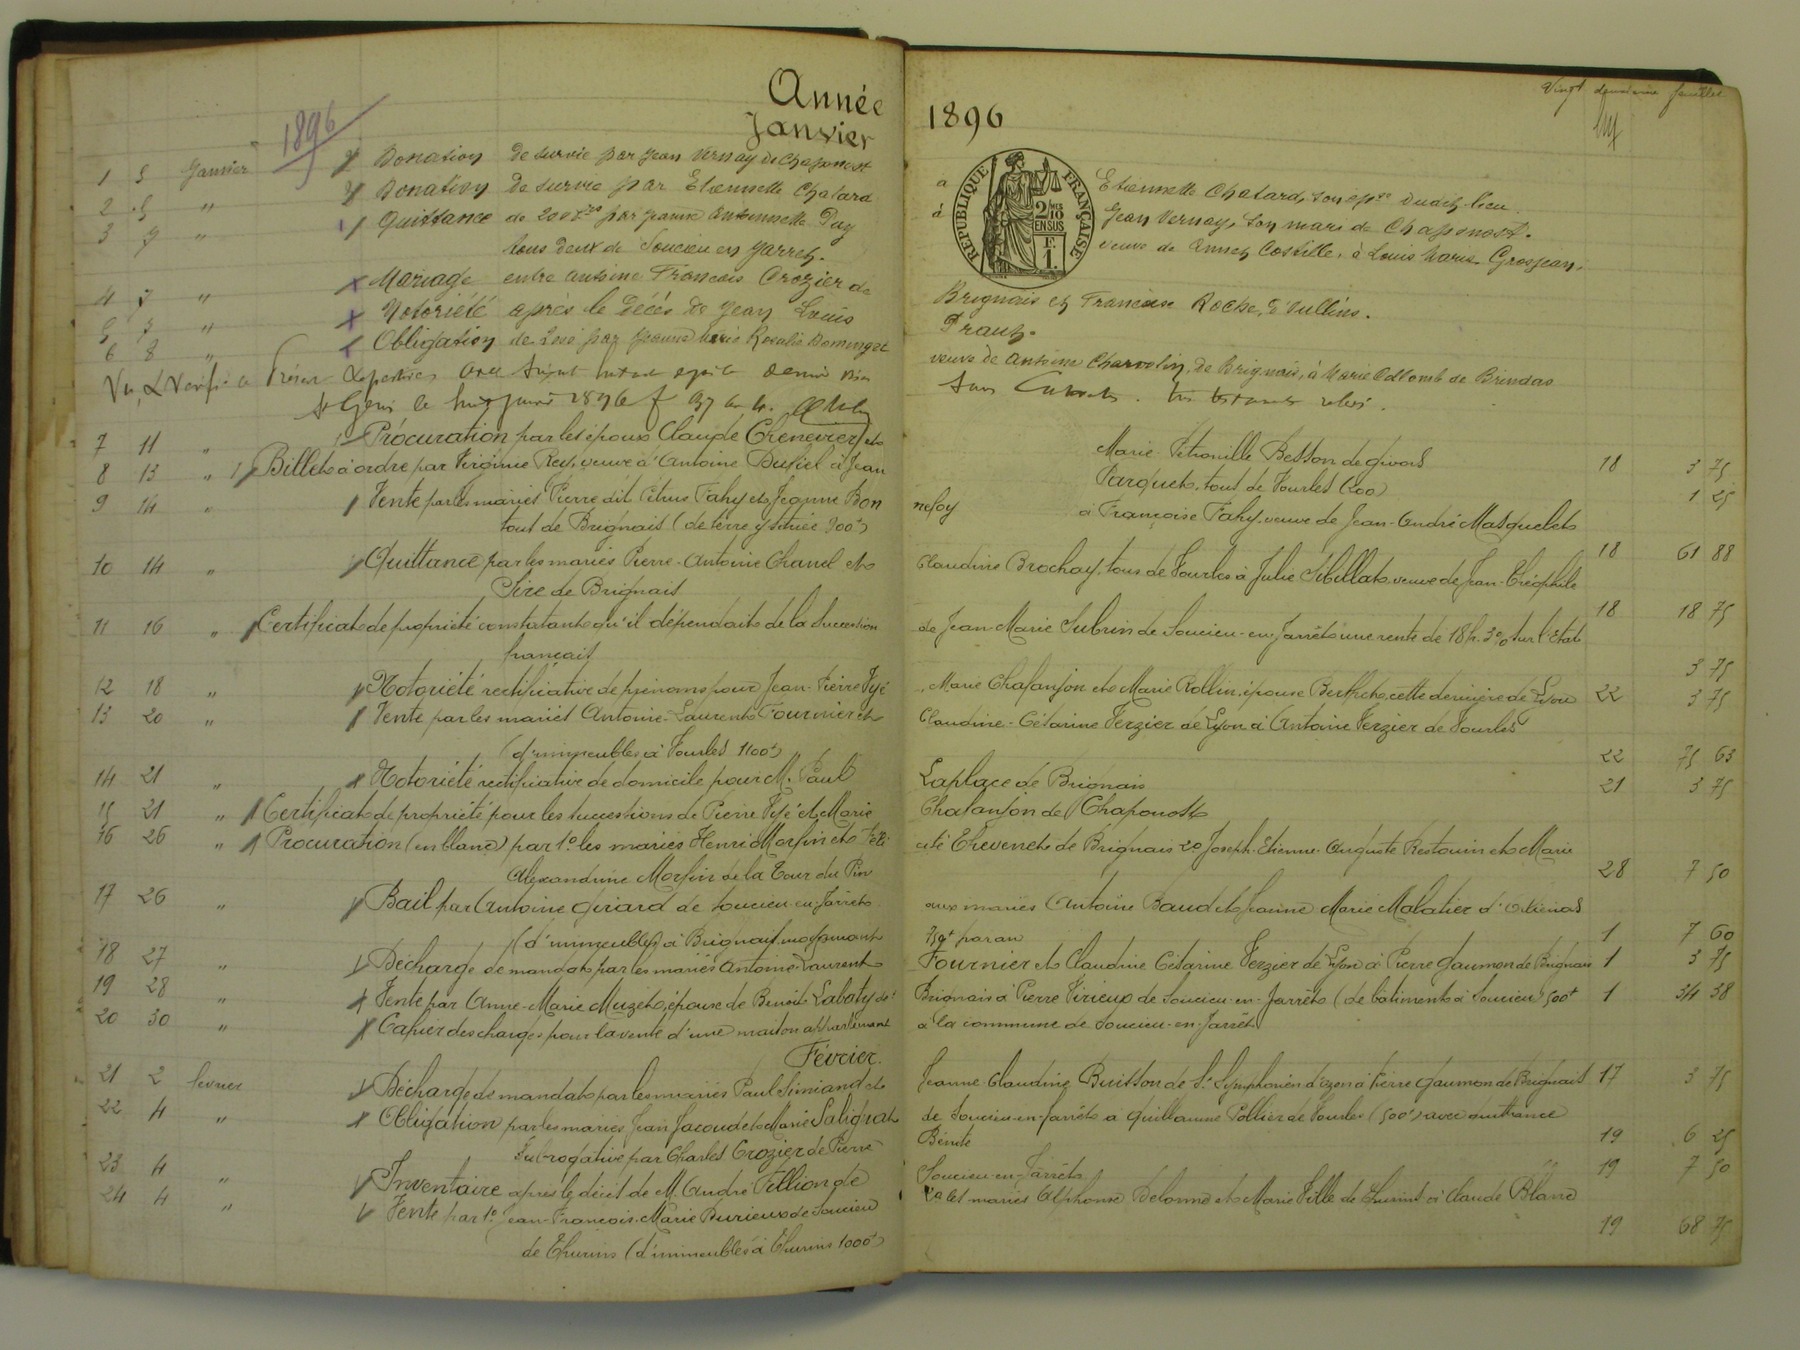 Vingt deuxième feuillet
1896
Année 1896
Janvier
REPUBLIQUE FRANÇAISE
2/10 EN SUS
F. 1.
1 5 Janvier Donation de survie par Jean Vernay de Chaponost à Etiennette Chatard, son épse dudit lieu.
2 5 " Donation de survie par Etiennette Chatard à Jean Vernay, son mari de Chaponost.
3 7 " Quittance de 200 par Antoinette Pay veuve de Annet Costille, à Louis Marie Grosjean,
tous deux de Soucieu en Jarret.
4 7 " Mariage entre Antoine François Crozier de Brignais et Francine Roche, d'Oullins.
5 7 " Notoriété après le décès de Jean Louis
6 8 " Obligation de par Marie Rosalie veuve de Antoine Charvolin, de Brignais, à Marie de Brindas
Vu & Vérifié le
St Genis le huit Janvier 1896
7 11 " Procuration par les époux Claude Chenevier et Marie Pétronille Besson de Givors 18 3 75
8 13 " Billet à ordre par Virginie Rey, veuve d'Antoine à Jean Parquet, tout de Vourles (200) 1 25
9 14 " Vente par les mariés Pierre dit Pétrus Fahy et Jeanne Bonnefoy à Françoise Fahy, veuve de Jean-André Masquelet
tout de Brignais (de terre y située 900f) 18 61 88
10 14 " Quittance par les mariés Pierre-Antoine Chanel et Claudine Brochay, tous de Vourles à Julie Sibillat, veuve de Jean-Théophile
Sire de Brignais 18 18 75
11 16 " Certificat de propriété constatant qu'il dépendait de la Succession de Jean-Marie Subrin de Soucieu-en-Jarrêt une rente de 18f. 3% sur l'Etat
français 3 75
12 18 " Notoriété rectificative de prénoms pour Jean-Pierre Fijé, Marie Chafanjon et Marie Rollin, épouse Berthet, cette dernière de Lyon 22 3 75
13 20 " Vente par les mariés Antoine-Laurent Fournier et Claudine-Césarine Verzier de Lyon à Antoine Verzier de Vourles
(d'immeubles à Vourles 1100f) 22 75 63
14 21 " Notoriété rectificative de domicile pour M. Paul Laplace de Brignais 21 3 75
15 21 " Certificat de propriété pour les successions de Pierre Fijé et Marie Chafanjon de Chaponost
16 26 " Procuration (en blanc) par 1o les mariés Henri Morfin et Félicité Thevenet de Brignais 2o Joseph-Etienne-Auguste Restouin et Marie
Alexandrine Morfin de la Tour du Pin 28 7 50
17 26 " Bail par Antoine Girard de Soucieu-en-Jarrêt aux mariés Antoine Baud et Jeanne Marie Malatier d'Orliénas
(d'immeubles) à Brignais, moyennant 75f par an 1 7 60
18 27 " Décharge de mandat par les mariés Antoine-Laurent Fournier et Claudine Césarine Verzier de Lyon à Pierre Gaumon de Brignais 1 3 75
19 28 " Vente par Anne-Marie Muzet, épouse de Benoit Labaty de Brignais à Pierre Virieux de Soucieu-en-Jarrêt (de bâtiment à Soucieu) 500f 1 34 38
20 30 " Cahier des charges pour la vente d'une maison appartenant à la commune de Soucieu-en-Jarrêt
Février.
21 2 février Décharge de mandat par les mariés Paul Simiand et Jeanne-Claudine Buisson de St Symphorien d'Ozon à Pierre Gaumon de Brignais 17 3 75
22 4 " Obligation par les mariés Jean Jacoud et Marie Salignat de Soucieu-en-Jarrêt à Guillaume Pollier de Vourles (500f) avec quittance
subrogative par Charles Crozier de Pierre Bénite 19 6 25
23 4 " Inventaire après le décès de M. André Fillion de Soucieu-en-Jarrêt 19 7 50
24 4 " Vente par 1o Jean-François-Marie Burieux de Soucieu 2o les mariés Alphonse Delorme et Marie Fille de Thurins à Claude Blanc
de Thurins (d'immeubles à Thurins 1000f) 19 68 75